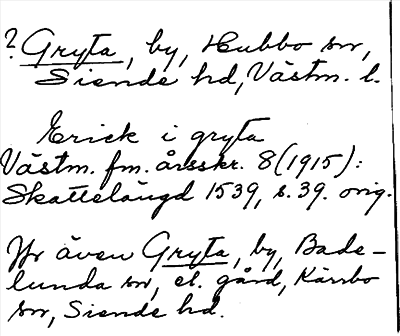 ? Gryta, by, Hubbo sn,
Siende hd, Västm. l.
Erick i gryta
Västm. fm. årsskr. 8 (1915):
Skattelängd 1539, s. 39. orig.
Jfr även Gryta, by, Bade-
lunda sn, el. gård, Kärrbo
sn, Siende hd.